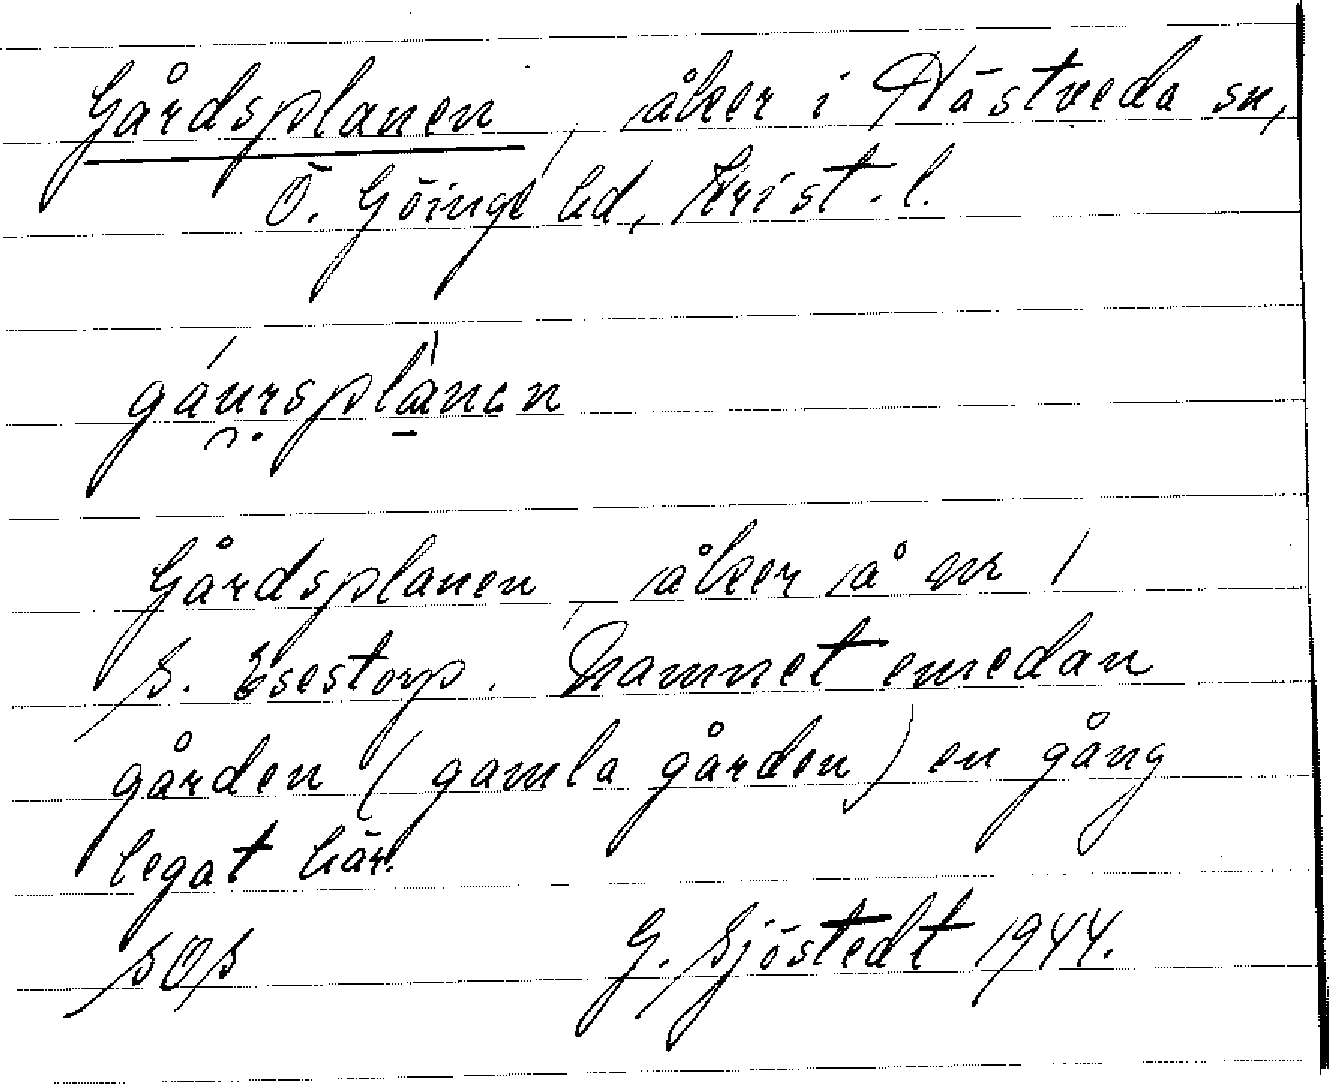 Gårdsplanen, åker i Hästveda sn,
Ö. Göinge hd, Krist. l.
gáu̯rsplànen
Gårdsplanen, åker å nr 1
S. Esestorp. Namnet emedan
gården (gamla gården) en gång
legat här.
SOS G. Sjöstedt 1944.